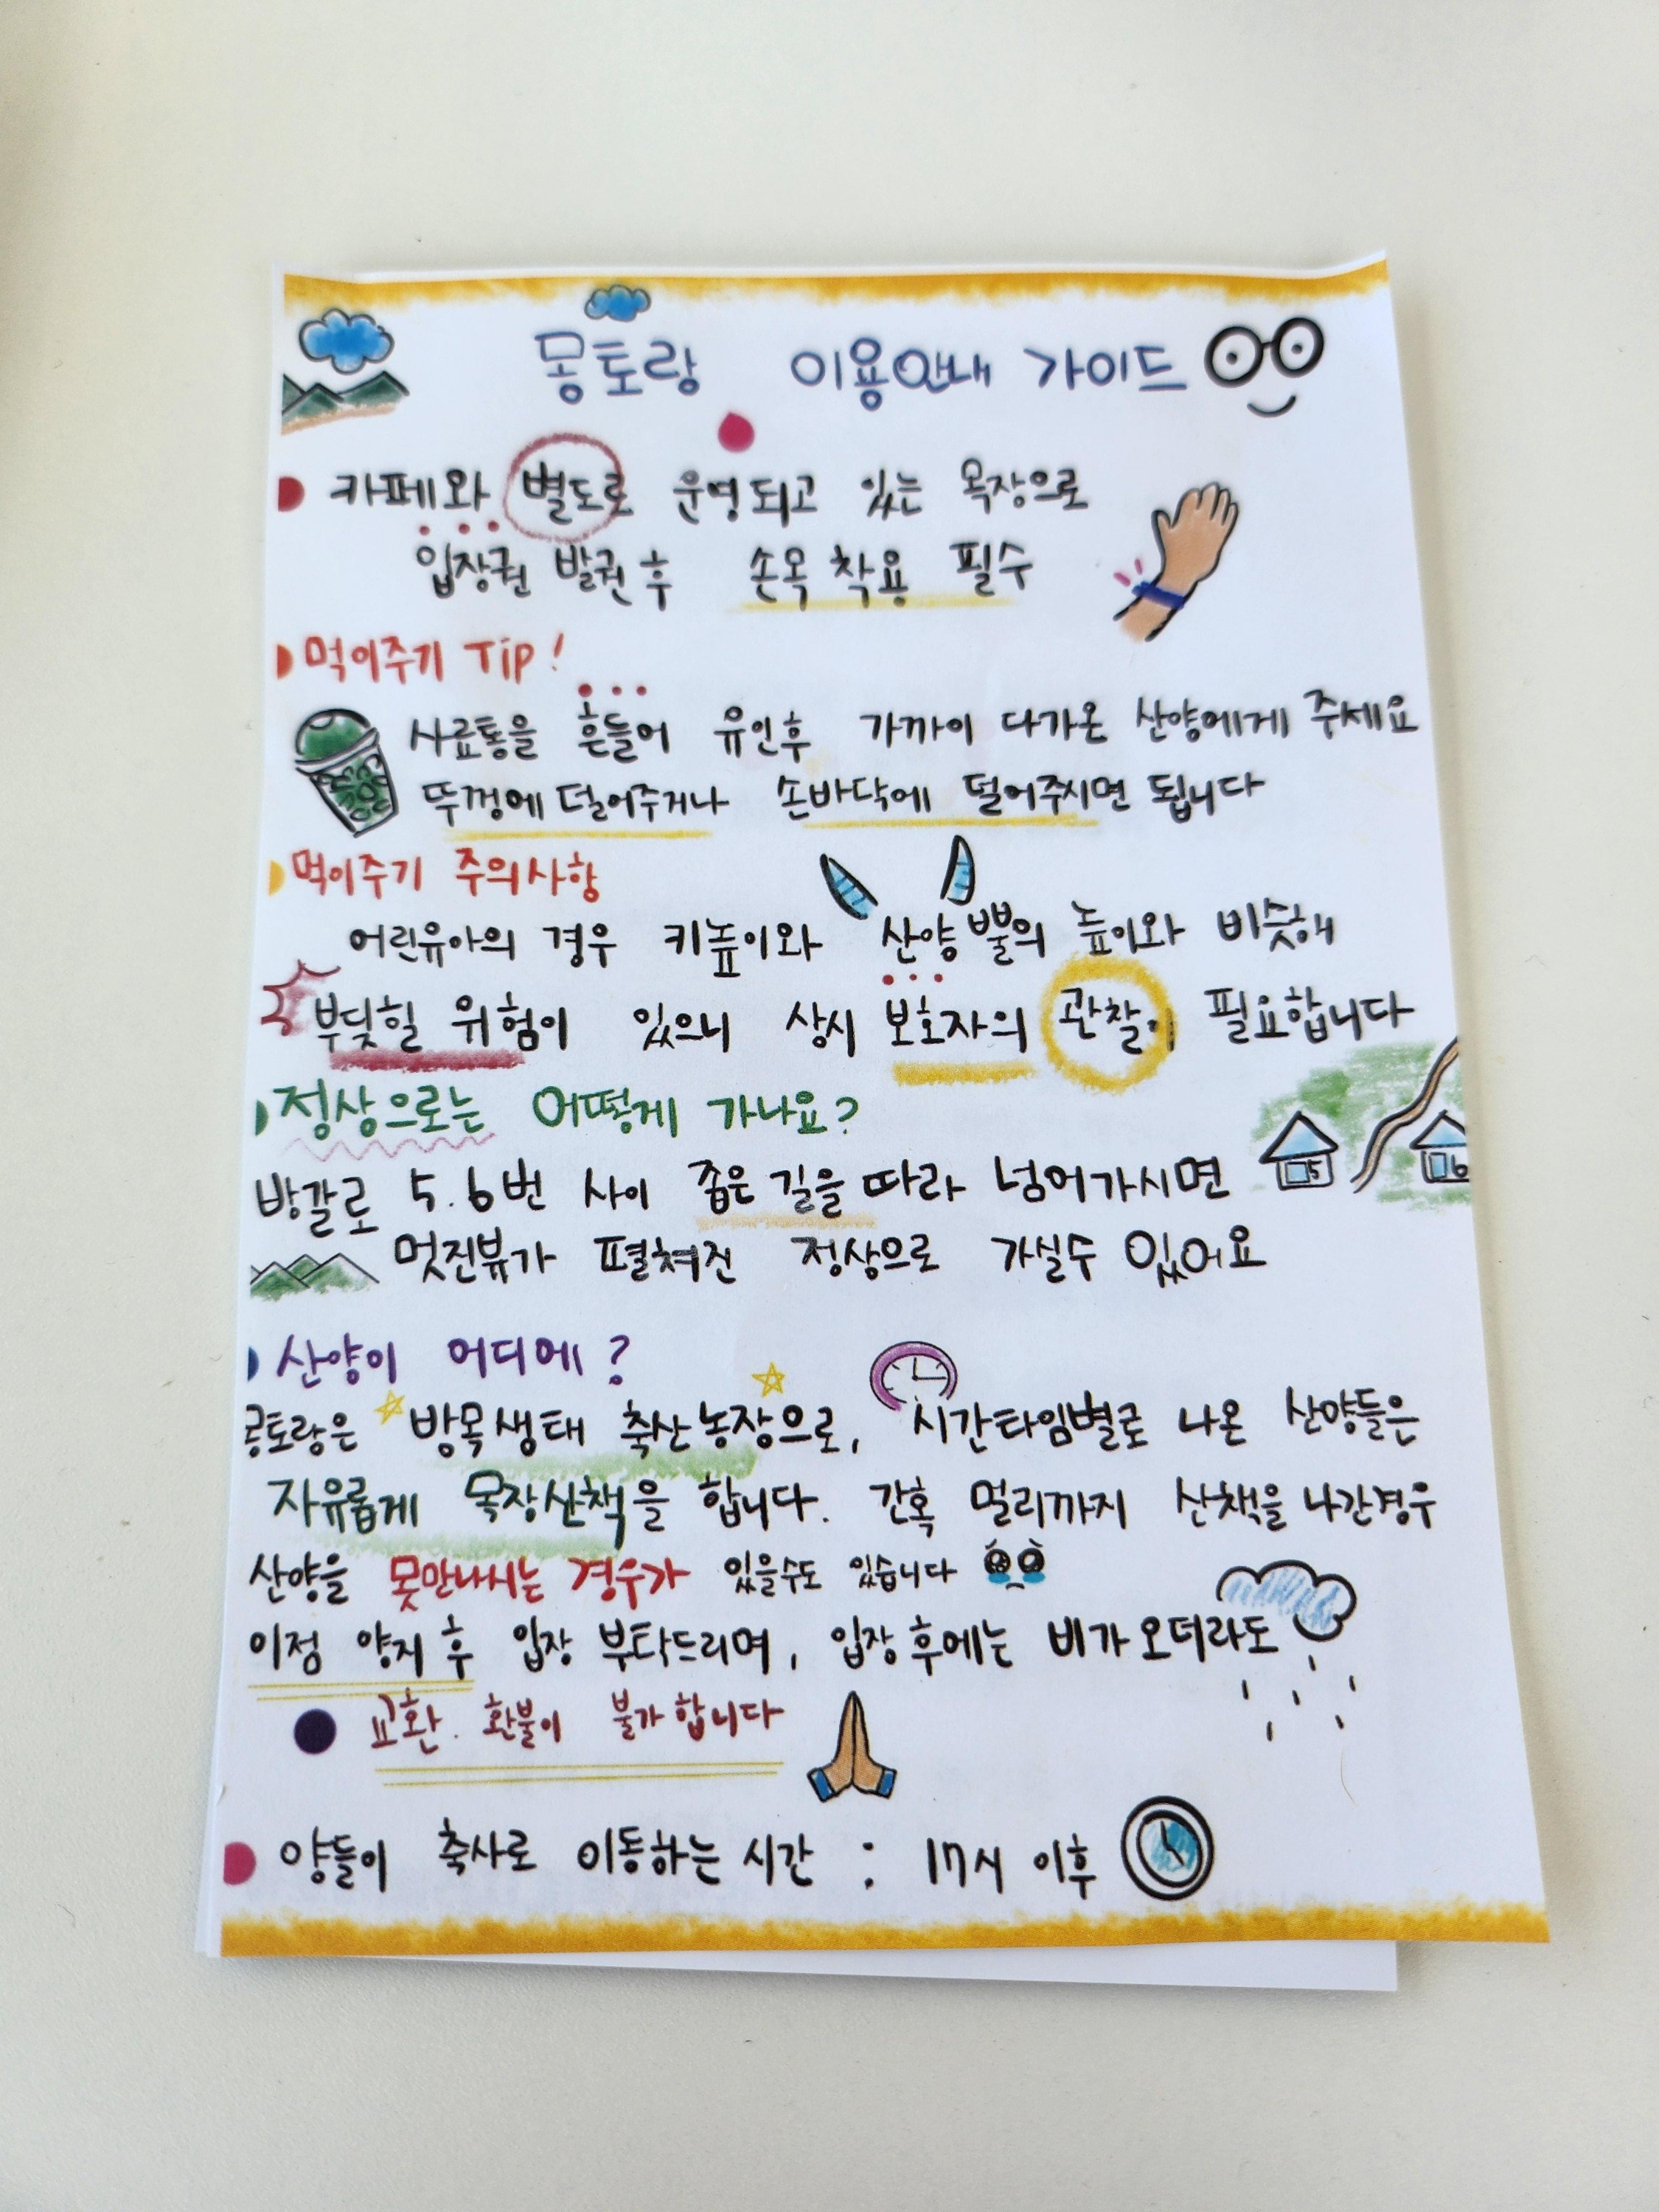 몽토랑 이용안내 가이드
카페와 별도로 운영되고 있는 목장으로
입장권 발권 후 손목 착용 필수
먹이주기 Tip!
사료통을 흔들어 유인후 가까이 다가온 산양에게 주세요
뚜껑에 덜어주거나 손바닥에 덜어주시면 됩니다
먹이주기 주의사항
어린유아의 경우 키높이와 산양 뿔의 높이와 비슷해
부딪힐 위험이 있으니 상시 보호자의 관찰이 필요합니다
정상으로는 어떻게 가나요?
방갈로 5.6번 사이 좁은 길을 따라 넘어가시면
5 6
멋진뷰가 펼쳐진 정상으로 가실수 있어요
산양이 어디에?
몽토랑은 방목생태 축산농장으로, 시간타임별로 나온 산양들은
자유롭게 목장산책을 합니다. 간혹 멀리까지 산책을 나간경우
산양을 못만나시는 경우가 있을수도 있습니다
이점 양지 후 입장 부탁드리며, 입장 후에는 비가 오더라도
교환. 환불이 불가합니다
양들이 축사로 이동하는 시간 : 17시 이후